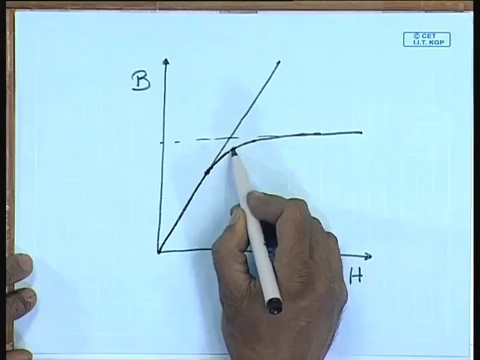 © CET
I.I.T. KGP
B
H